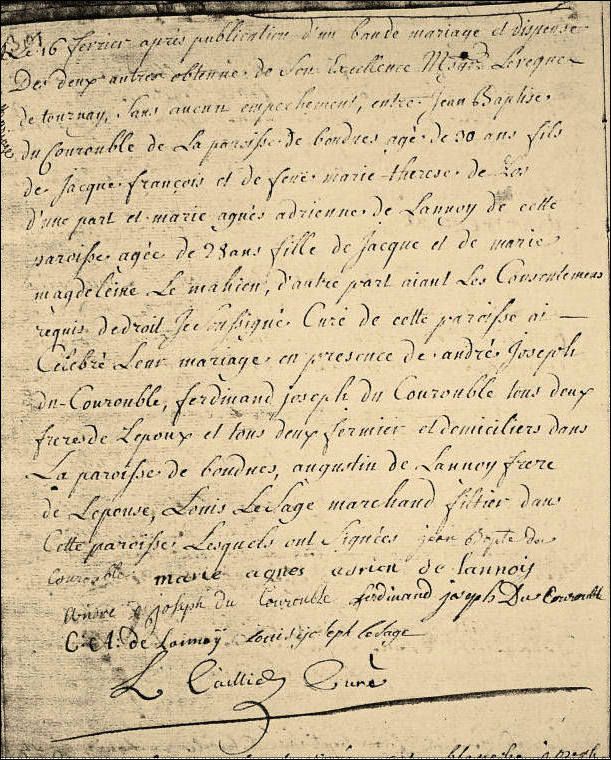 Le 16 fevrier après publication d'un bande mariage et dispense
Des deux autres obtenue de son Excellence Mgr Leveque
de tournay, sans aucun empechement, entre Jean Baptise
du Courouble de La paroisse de bondues agé de 30 ans fils
de Jacque françois et de feue marie therese de Los
d'une part et marie agnès adrienne de Lannoy de cette
paroisse agée de 28 ans fille de Jacque et de marie
magdeleine Le mahieu, d'autre part aiant Les Consentemens
requis de droit Je soussigné Curé de cette paroisse ai
Célébré Leur mariage en presence de andré Joseph
du-Courouble, ferdinand joseph du Courouble tous deux
freres de Lepoux et tous deux fermier et domiciliers dans
La paroisse de bondues, augustin de Lannoy frere
de Lepouse, Louis Le Sage marchand filtier dans
Cette paroisse, Lesquels ont signées jean Bpte du
Courouble marie agnes adrien de lannoij
Andre joseph du Courouble ferdinand joseph Du Courouble
C. A. de Lannoy Louis joseph lesage
L Caillie Curé